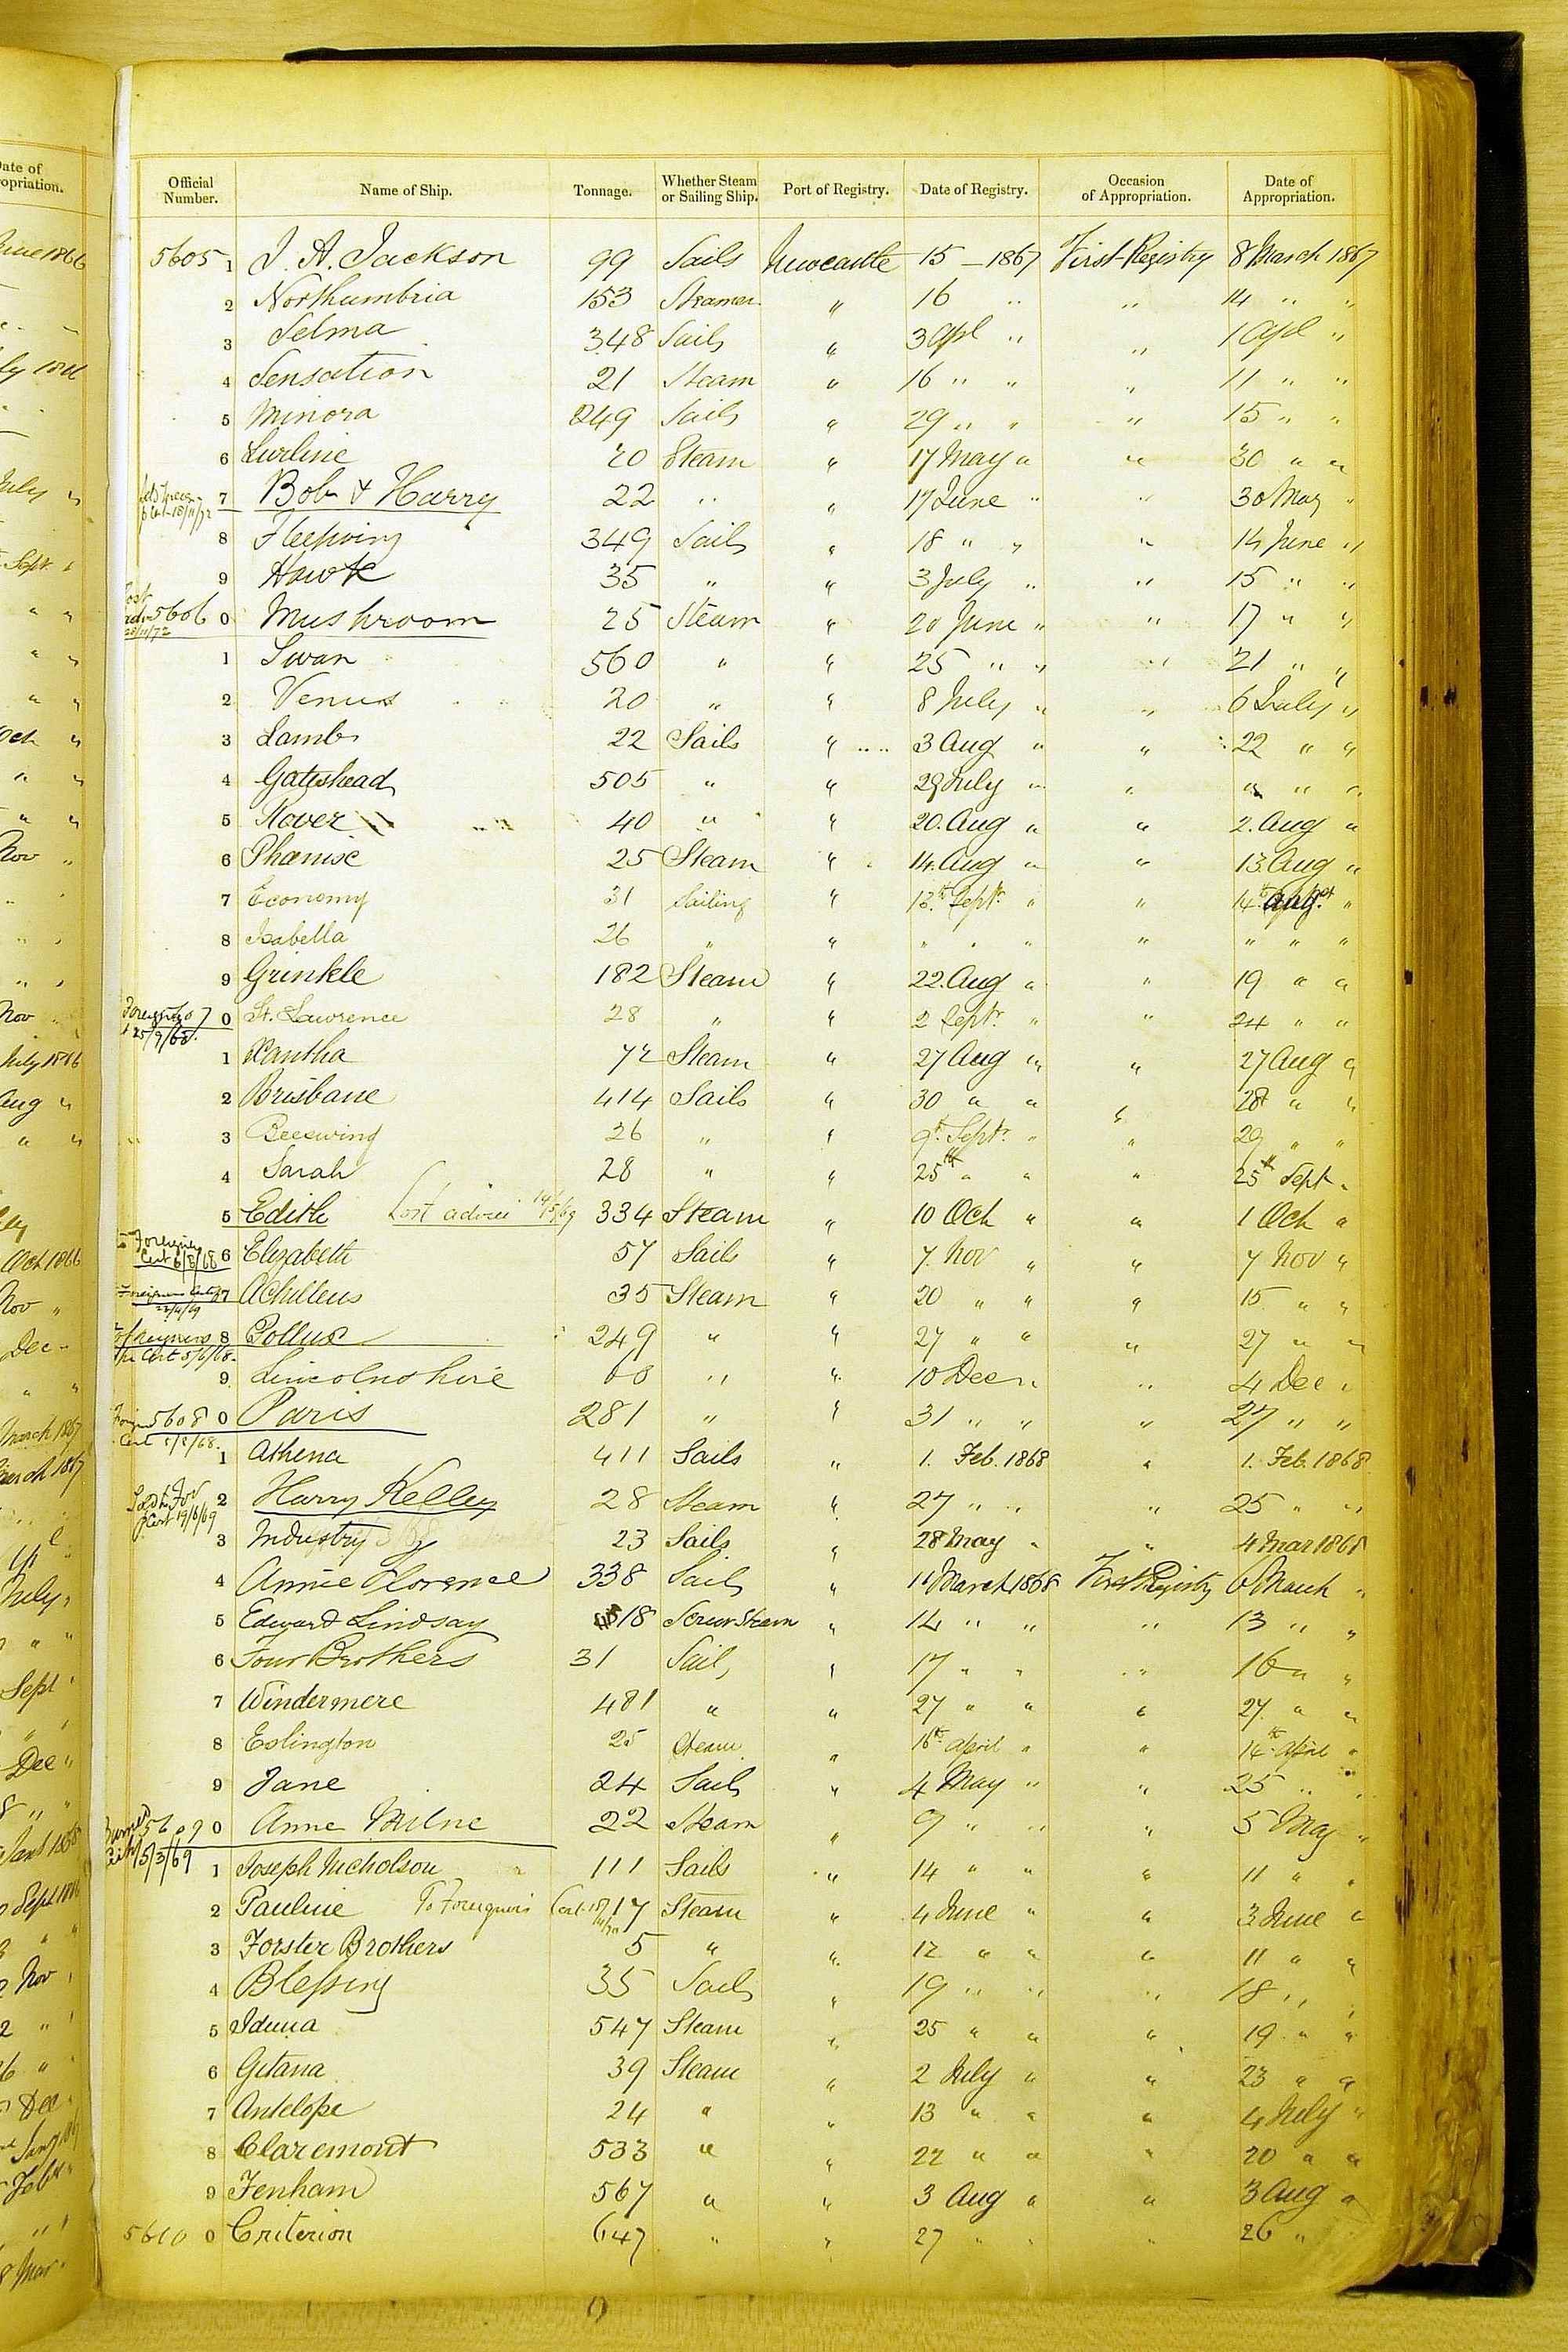 Official Number. Name of Ship. Tonnage. Whether Steam or Sailing Ship. Port of Registry. Date of Registry. Occasion of Appropriation. Date of Appropriation.
5605 1 J. A. Jackson 99 Sails Newcastle 15 — 1867 First Registry 8 March 1867
2 Northumbria 153 Steamer " 16 " " 14 " "
3 Selma 348 Sails " 3 Apl " " 1 Apl "
4 Sensation 21 Steam " 16 " " " 11 " "
5 Minora 249 Sails " 29 " " " 15 " "
6 Lurline 20 Steam " 17 May " " 30 " "
7 Bob & Harry 22 " " 17 June " " 30 May "
8 349 Sails " 18 " " " 14 June "
9 Hawk 35 " " 3 July " " 15 " "
5606 0 Mushroom 25 Steam " 20 June " " 17 " "
1 Swan 560 " " 25 " " " 21 " "
2 Venus 20 " " 8 July " " 6 July "
3 Lamb 22 Sails " 3 Aug " " 22 " "
4 Gateshead 505 " " 29 July " " " " "
5 Rover 40 " " 20. Aug " " 2. Aug "
6 Phœnix 25 Steam " 14. Aug " " 13. Aug "
7 Economy 31 Sailing " 13th Septr " " 14th Augst "
8 Isabella 26 " " " " " " " " "
9 Grinkle 182 Steam " 22. Aug " " 19 " "
07 0 St. Lawrence 28 " " 2 Septr " " 24 " "
1 Xantha 72 Steam " 27 Aug " " 27 Aug "
2 Brisbane 414 Sails " 30 " " " 28 " "
3 Beeswing 26 " " 9th Septr " " 29 " "
4 Sarah 28 " " 25th " " " 25th Sept "
5 Edith Lost advice 14/5/69 334 Steam " 10 Oct " " 1 Oct "
to Foreigners Cert 6/8/68 6 Elizabeth 57 Sails " 7. Nov " " 7 Nov "
7 Achilleus 35 Steam " 20 " " " 15 " "
To foreigners per Cert 5/6/68. 8 Pollux 249 " " 27 " " " 27 " "
9 Lincolnshire 60 " " 10 Dec " " 4 Dec "
5608 0 Paris 281 " " 31 " " " 27 " "
1 Athena 411 Sails " 1. Feb. 1868 " 1. Feb. 1868
Sold to For pCert 19/8/69 2 Harry Kelley 28 Steam " 27 " " " 25 " "
3 Industry 23 Sails " 28 May " " 4 Mar 1868
4 Annie Florence 338 Sails " 11 March 1868 First Registry 6 March "
5 Edward Lindsay 18 Screw Steam " 14 " " " 13 " "
6 Four Brothers 31 Sail " 17 " " " 16 " "
7 Windermere 481 " " 27 " " " 27. " "
8 Eslington 25 Steam " 16th April " " 14th April "
9 Jane 24 Sails " 4 May " " 25 " "
5609 0 Anne Milne 22 Steam " 9 " " " 5 May "
15/3/69 1 Joseph Nicholson 111 Sails " 14 " " " 11 " "
2 Pauline To Foreigners Cert. 17 Steam " 4 June " " 3 June "
3 Forster Brothers 5 " " 12 " " " 11 " "
4 Blessing 35 Sails " 19 " " " 18 " "
5 Iduna 547 Steam " 25 " " " 19 " "
6 Gitana 39 Steam " 2 July " " 23 " "
7 Antelope 24 " " 13 " " " 4 July "
8 Claremont 533 " " 22 " " " 20 " "
9 Fenham 567 " " 3 Aug " " 3 Aug "
5610 0 Criterion 647 " " 27 " " " 26 "